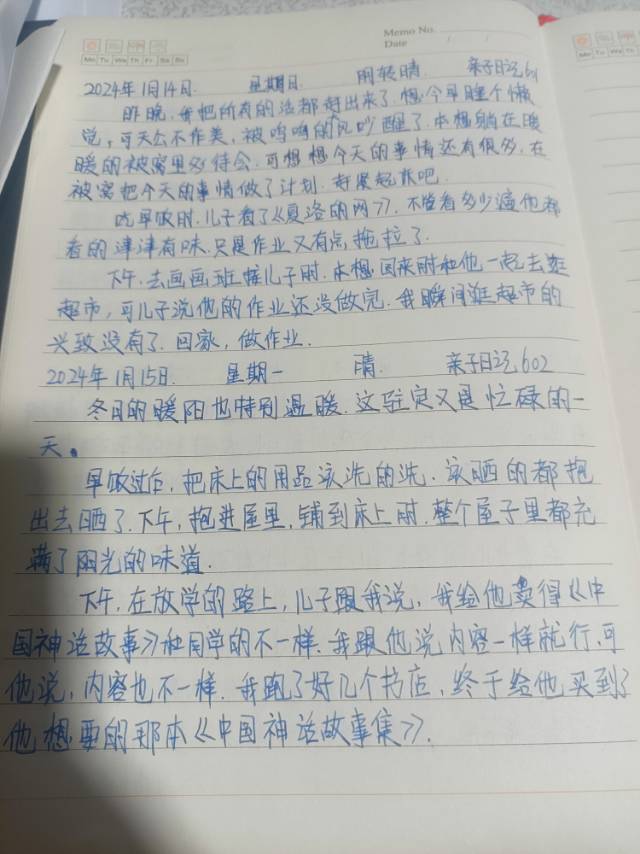 Memo No.
Date
Mo Tu We Th Fr Sa Su
2024年1月14日. 星期日 阴转晴. 亲子日记601
昨晚,我把所有的活都赶出来了.想今早睡个懒
觉,可天公不作美,被呜呜的风吵醒了.本想躺在暖
暖的被窝里多待会.可想想今天的事情还有很多.在
被窝把今天的事情做了计划.赶紧起床吧.
吃早饭时.儿子看了《夏洛的网》.不管看多少遍他都
看的津津有味.只是作业又有点拖拉了.
下午,去画画班接儿子时.本想回来时和他一起去逛
超市,可儿子说他的作业还没做完.我瞬间逛超市的
兴致没有了.回家,做作业.
2024年1月15日. 星期一 晴. 亲子日记602
冬日的暖阳也特别温暖.这注定又是忙碌的一
天。
早饭过后,把床上的用品该洗的洗.该晒的都抱
出去晒了.下午,抱进屋里,铺到床上时.整个屋子里都充
满了阳光的味道.
下午,在放学的路上,儿子跟我说,我给他买得《中
国神话故事》和同学的不一样.我跟他说内容一样就行.可
他说,内容也不一样.我跑了好几个书店,终于给他买到了
他想要的那本《中国神话故事集》.